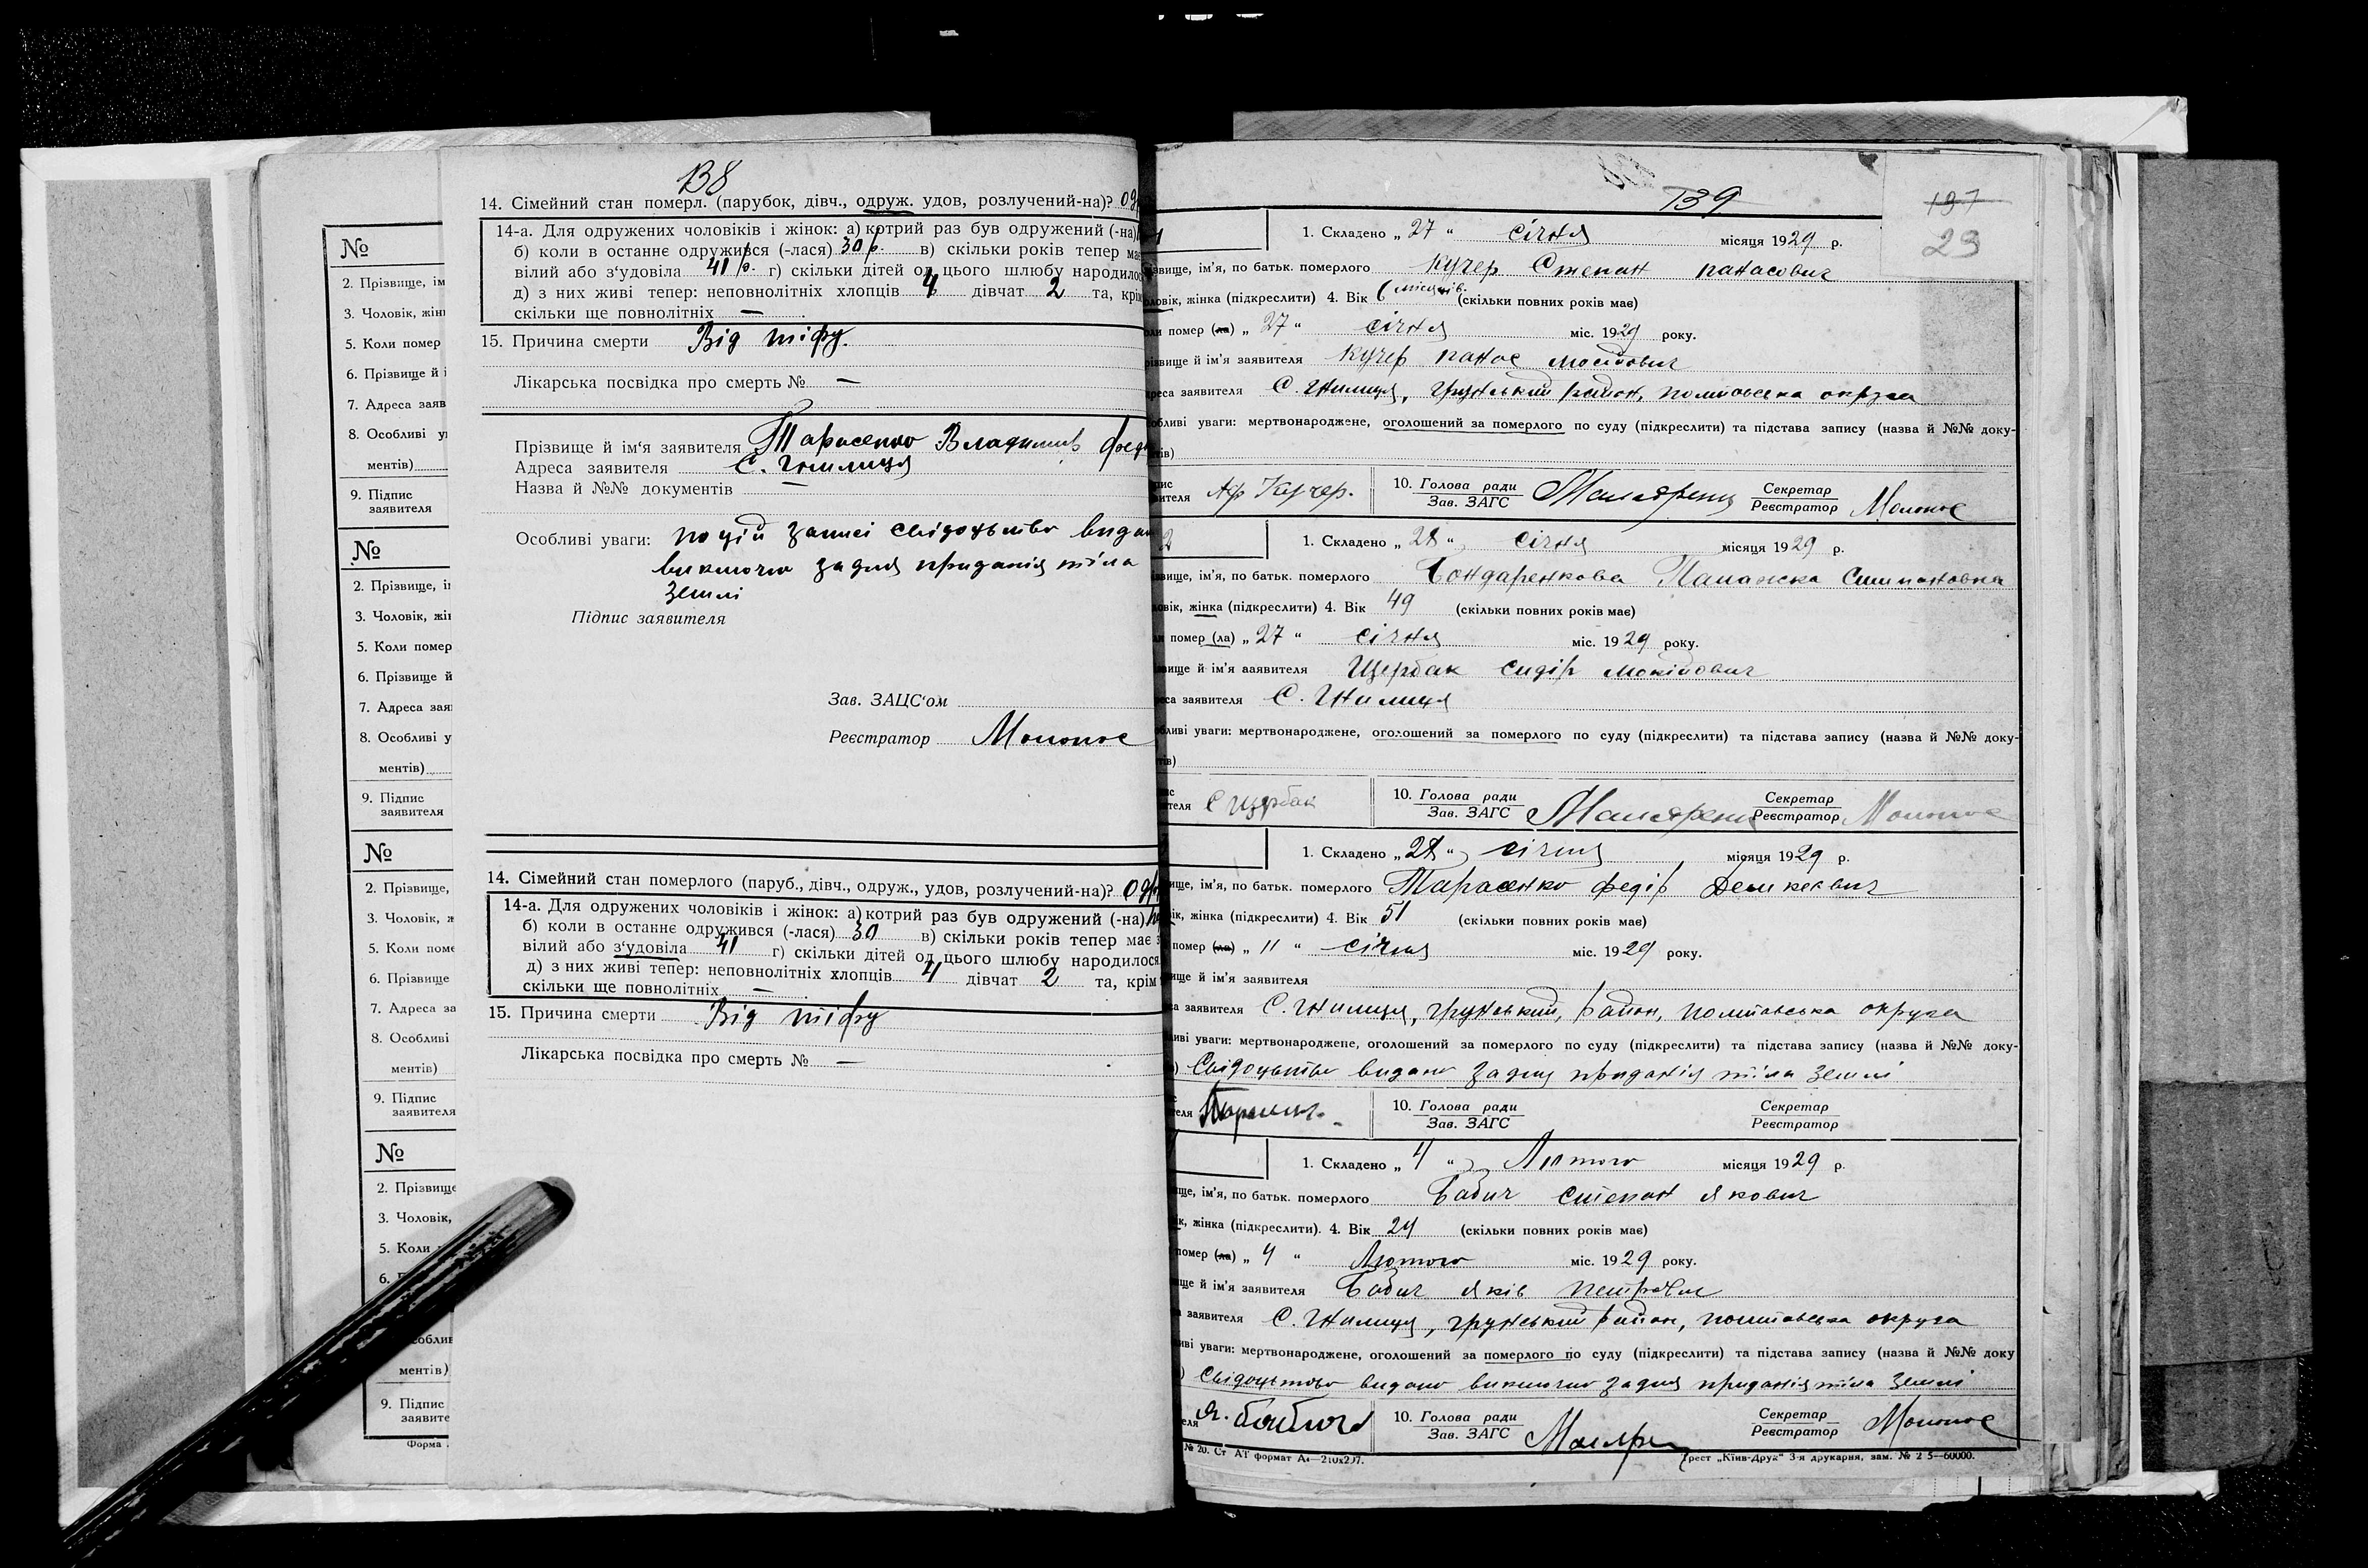 №
2. Прізвище, ім
3. Чоловік, жін
5. Коли помер
6. Прізвище й і
7. Адреса заяв
8. Особливі у
ментів)
9. Підпис
заявителя
№
2. Прізвище, і
3. Чоловік, жі
5. Коли помер
6. Прізвище й
7. Адреса зая
8. Особливі у
ментів)
9. Підпис
заявителя
№
2. Прізвище,
3. Чоловік, ж
5. Коли поме
6. Прізвище
7. Адреса за
8. Особливі
ментів)
9. Підпис
заявителя
№
2. Прізвище
3. Чоловік,
5. Коли
6.
ментів)
9. Підпис
заявите
Форма
138
14. Сімейний стан померл. (парубок, дівч., одруж. удов, розлучений-на)? од
14-а. Для одружених чоловіків і жінок: а) котрий раз був одружений (-на)
б) коли в останнє одружився (-лася) 30 р. в) скільки років тепер має
вілий або з'удовіла 41 р. г) скільки дітей од цього шлюбу народилос
д) з них живі тепер: неповнолітніх хлопців 4 дівчат 2 та, крім
скільки ще повнолітніх —
15. Причина смерти Від тіфу.
Лікарська посвідка про смерть № —
Прізвище й ім'я заявителя Тарасенко Владимир Фед
Адреса заявителя С. Гнилиця
Назва й №№ документів —
Особливі уваги: по цій записі свідоцьтво видан
виключно задля придання тіла
землі
Підпис заявителя
Зав. ЗАЦС'ом
Реєстратор Мононос
14. Сімейний стан померлого (паруб., дівч., одруж., удов, розлучений-на)? одр
14-а. Для одружених чоловіків і жінок: а) котрий раз був одружений (-на)
б) коли в останнє одружився (-лася) 30 в) скільки років тепер має
вілий або з'удовіла 41 г) скільки дітей од цього шлюбу народилося
д) з них живі тепер: неповнолітніх хлопців 4 дівчат 2 та, крім
скільки ще повнолітніх —
15. Причина смерти Від тіфу
Лікарська посвідка про смерть № —
139
197
29
1. Складено „ 27 “ січня місяця 1929 р.
звище, ім'я, по батьк. померлого Кучер Степан панасович
ловік, жінка (підкреслити) 4. Вік 6 місяців. (скільки повних років має)
ли помер (ла) „ 27 “ січня міс. 1929 року.
різвище й ім'я заявителя Кучер панас мосійович
реса заявителя С. Гнилиця, Грунський район, полтавська округа
обливі уваги: мертвонароджене, оголошений за померлого по суду (підкреслити) та підстава запису (назва й №№ доку-
тів)
пис
вителя Аф Кучер. 10. Голова ради
Зав. ЗАГС Маляренко Секретар
Реєстратор Мононос
2 1. Складено „ 28 “ січня місяця 1929 р.
звище, ім'я, по батьк. померлого Бондаренкова Палажка Степановна
ловік, жінка (підкреслити) 4. Вік 49 (скільки повних років має)
ли помер (ла) „ 27 “ січня міс. 1929 року.
звище й ім'я заявителя Щербак сидір мокійович
еса заявителя С. Гнилиця
бливі уваги: мертвонароджене, оголошений за померлого по суду (підкреслити) та підстава запису (назва й №№ доку-
тів)
ис
ителя С Щербак 10. Голова ради
Зав. ЗАГС Маляренко Секретар
Реєстратор Мононос
1. Складено „ 28 “ січня місяця 1929 р.
ище, ім'я, по батьк. померлого Тарасенко федір
ік, жінка (підкреслити) 4. Вік 51 (скільки повних років має)
помер (ла) „ 11 “ січня міс. 1929 року.
ище й ім'я заявителя
са заявителя С. Гнилиця, грунський, район, полтавська округа
иві уваги: мертвонароджене, оголошений за померлого по суду (підкреслити) та підстава запису (назва й №№ доку-
) Свідоцьтво видано задля придання тіла землі
теля 10. Голова ради
Зав. ЗАГС Секретар
Реєстратор
1. Складено „ 4 “ Лютого місяця 1929 р.
ище, ім'я, по батьк. померлого Бабич степан якович
к, жінка (підкреслити). 4. Вік 24 (скільки повних років має)
помер (ла) „ 4 “ Лютого міс. 1929 року.
ище й ім'я заявителя Бабич яків петрович
а заявителя С. Гнилиця, грунський район, полтавська округа
иві уваги: мертвонароджене, оголошений за померлого по суду (підкреслити) та підстава запису (назва й №№ доку
) Свідоцьтво видано виключно задля придання тіла землі
еля Я. бабич 10. Голова ради
Зав. ЗАГС Секретар
Реєстратор Мононос
№ 20. Ст АТ формат А4—210х297. Трест „Київ-Друк“ 3-я друкарня, зам. № 2 5—60000.